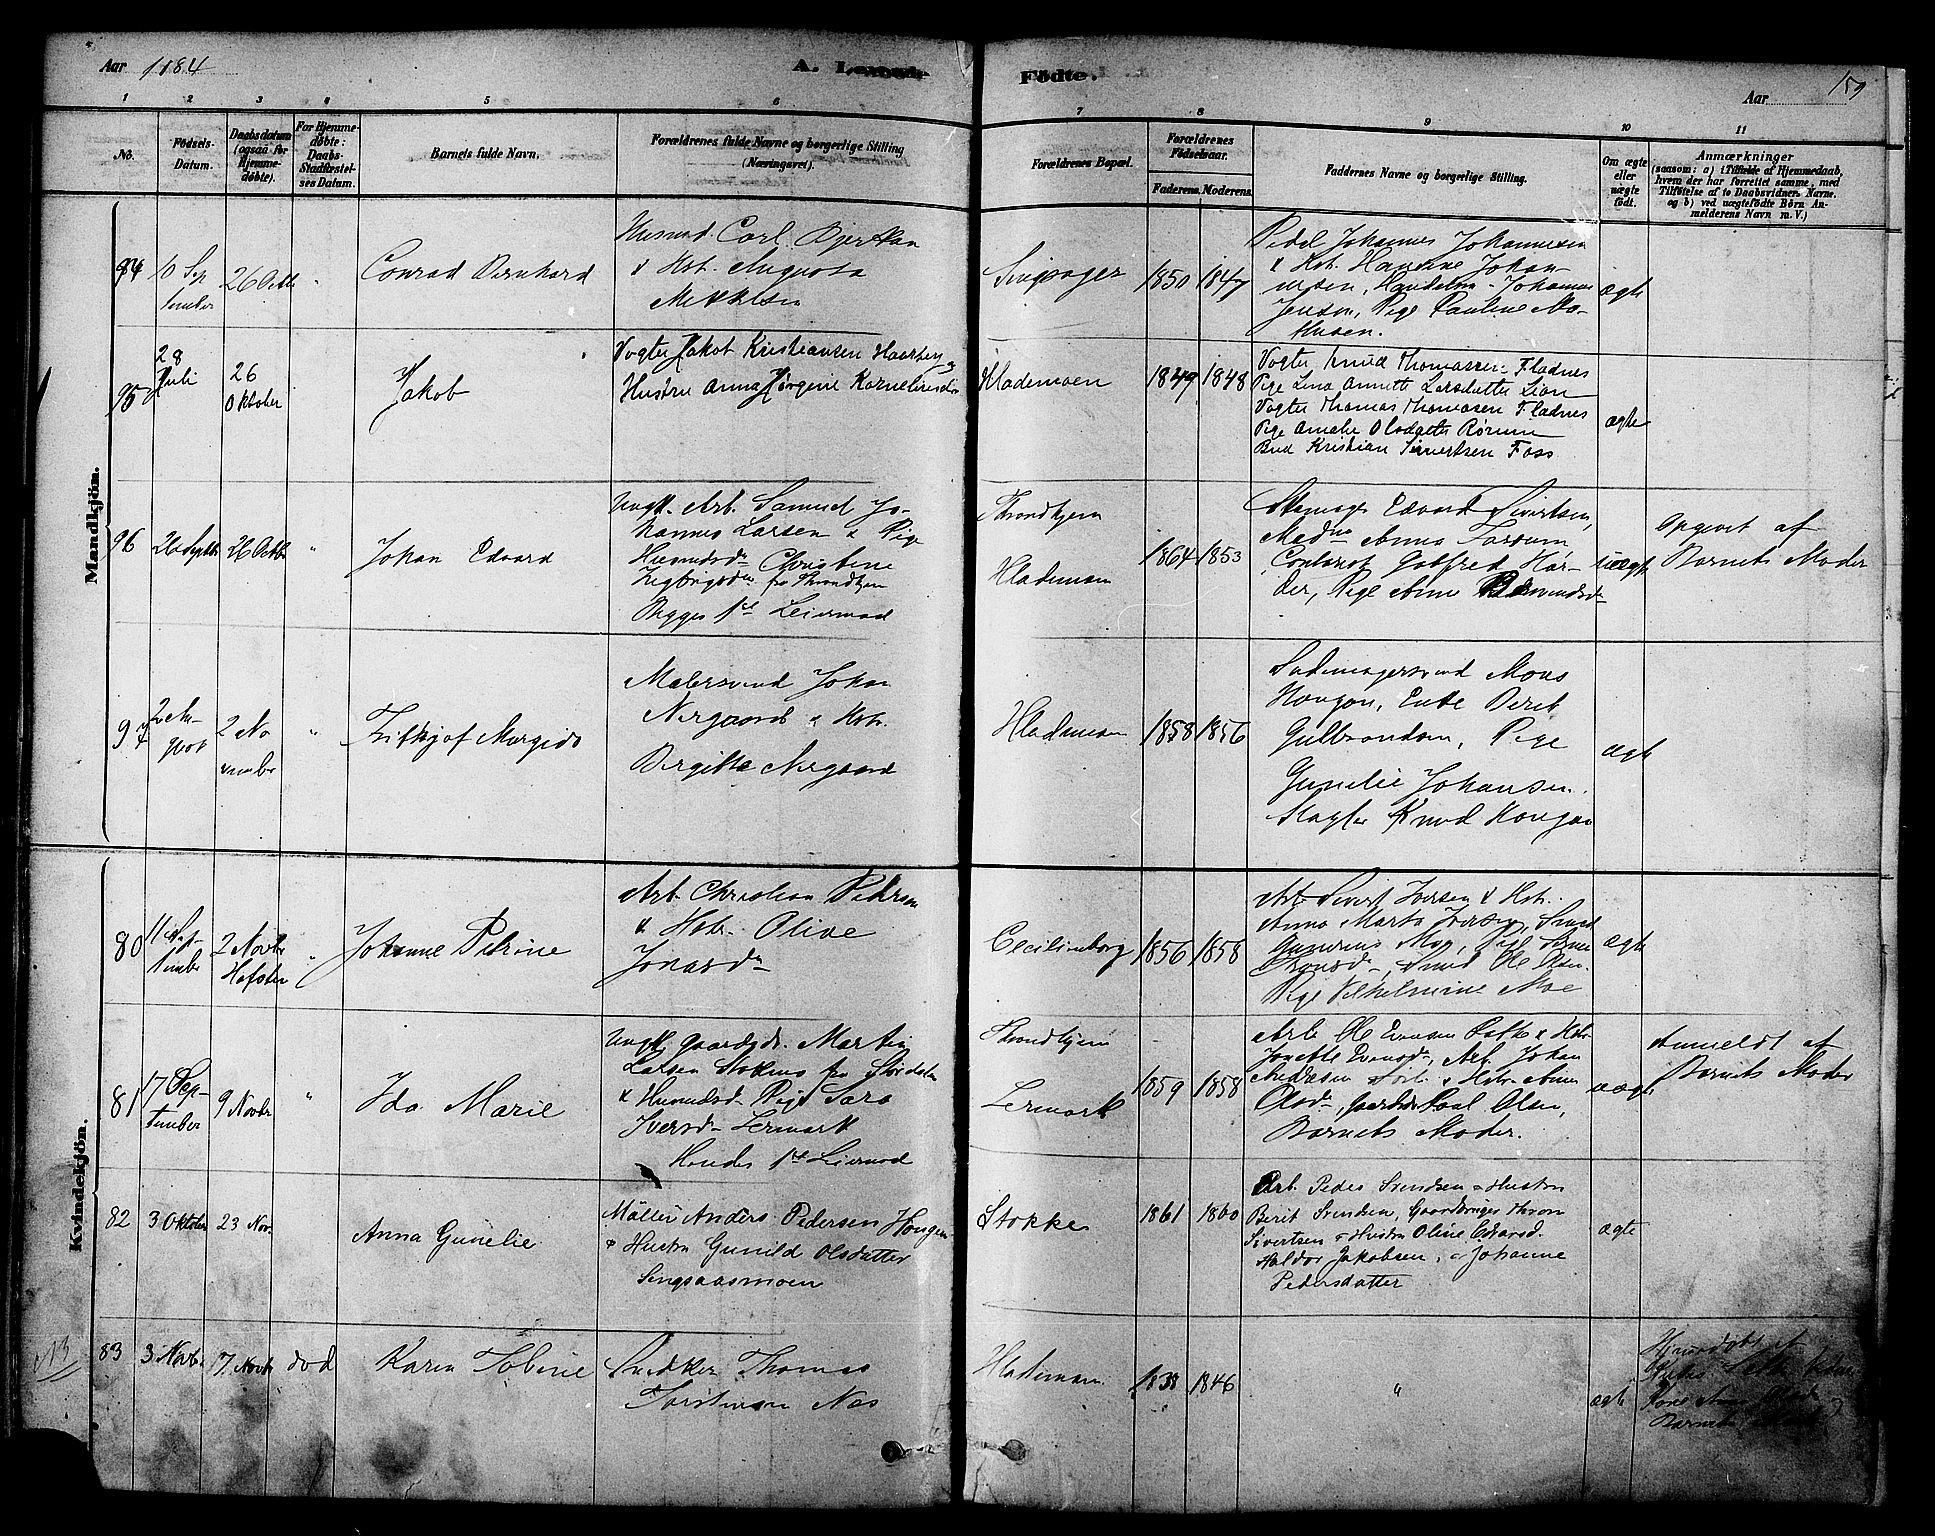 Aar 1884
A. Levende Fødte.
Aar
159
1 2 3 4 5 6 7 8 9 10 11
No.
Fødsels-
Datum.
Daabsdatum
(ogsaa for
Hjemme-
døbte).
For Hjemme-
døbte:
Daabs-
Stadfæstel-
ses Datum.
Barnets fulde Navn.
Forældrenes fulde Navne og borgerlige Stilling
(Næringsvei).
Forældrenes Bopæl.
Forældrenes
Fødselsaar.
Faderens. Moderens.
Faddernes Navne og borgerlige Stilling.
Om ægte
eller
uægte
født.
Anmærkninger
(saasom: a) i Tilfælde af Hjemmedaab,
hvem der har forrettet samme, med
Tilføielse af to Daabsvidners Navne,
og b) ved uægtefødte Børn An-
melderens Navn m. V.)
Mandkjön.
94
10 Sep
tember
26 Octb
"
Conrad Bernhard
Husmd. Carl Bjerkan
& Hst. Augusta
Mikkelsen
1850
1847
Pedel Johannes Johannesen
& Hst. Hansine Johan-
nesen, Handelsm. Johannes
Jensen, Pige Pauline Ma-
thisen.
ægte
95
28
Juli
26
Oktober
Jakob
Vogter Jakob Kristiansen Haarberg
Hustru Anna Jørgine Kornelius
Hlademoen
1849
1848
Vogter Knud Thomassen Fladnes
Pige Lina Annette Larsdatter Lian
Vogter Thomas Thomasen Fladnes
Pige Amalie Olsdatter Rørum
Bud Kristian Sivertsen Foss
ægte
96
26 Septbr
26 Octbr
"
Johan Edvard
Ungk. Arb. Samuel Jo-
hannes Larsen & Pige
Husmdsd. Christine
fra Throndhjem
Begges 1ste Leiermaal
Throndhjem
Hlademoen
1864
1853
Edvard Sivertsen,
Madme Anna
Contorist Gotfred Har-
der, Pige Anne
uægte
Opgivet af
Barnets Moder
97
2 Au-
gust
2 No
vember
"
Frithjof Margido
Malersvend Johan
Nergaard & Hst.
Birgitte Nergaard
Hlademoen
1858
1856
Sadelmagersvend Mons
Haugan, Enke Berit
Gulbrandsen, Pige
Gunelie Johansen.
Slagter Knud Haugan
ægte
Kvindekjön.
80
11 Sep-
tember
2 Novbr
Hofster
"
Johanne Petrine
Arb. Christian Pedersen
& Hst. Olive
Jonasdr
Cecilienborg
1856
1858
Arb Sivert Iversen & Hst.
Anna Marta Iversen, Smed
Gunerius Moe, Pige
Smed Ole Olsen
Pige Vilhelmine Moe
ægte
81
17 Sep-
tember
9 Novbr
"
Ida Marie
Ungk. Gaardgdr. Martin
Larsen Stokmo fra Størdalen
& Husmdsd. Pige Sara
Iversd. Lermark
Hendes 1ste Leiermaal
Throndhjem
Lermark
1859
1858
Arb Ole Evensen & Hst.
Jonette Evensd, Arb. Johan
& Hst. Anne
Olsdr, Paal Olsen,
Barnets Moder.
uægte
Anmeldt af
Barnets Moder
82
3 Oktober
23 Nov.
Anna Gunelie
Møller Anders Pedersen Haugen
& Hustru Gunild Olsdatter
Singsaasmoen
Stokke
1861
1860
Arb. Peder Svendsen & Hustru
Berit Svendsen, Gaardbruger Thron
Sivertsen & Hustru Oline Edvarsd.
Haldor Jakobsen, & Johanne
Pedersdatter
ægte
NB
83
3 Novbr
7 Novbr
død
Karen Tobine
Snedker Thomas
Torstensen Næs
Hlademoen
1838
1846
"
ægte
Hjemdøbt af
Barnets